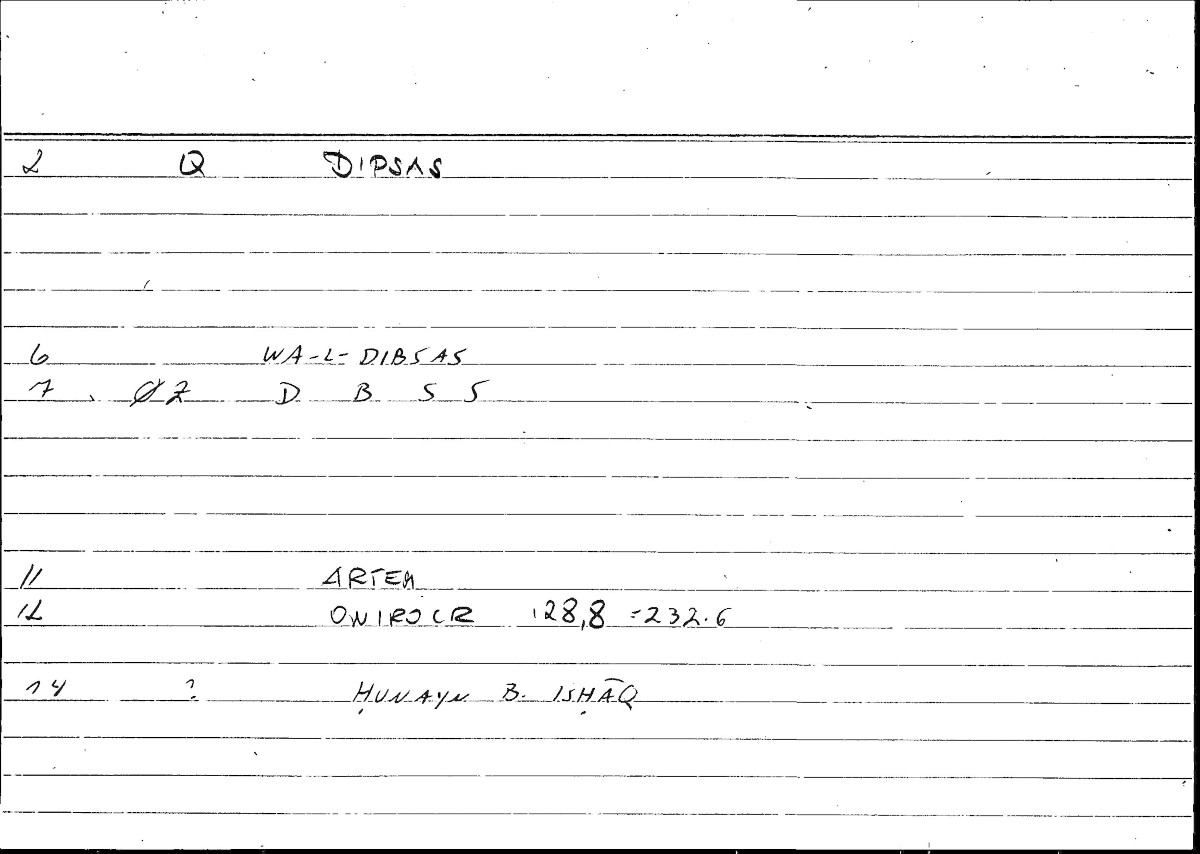 2 Q DIPSAS
6 WA-L-DIBSAS
7 ØZ D B S S
11 ARTEM
12 ONIROCR 128,8 =232.6
14 ? ḤUNAYN B. ISḤĀQ